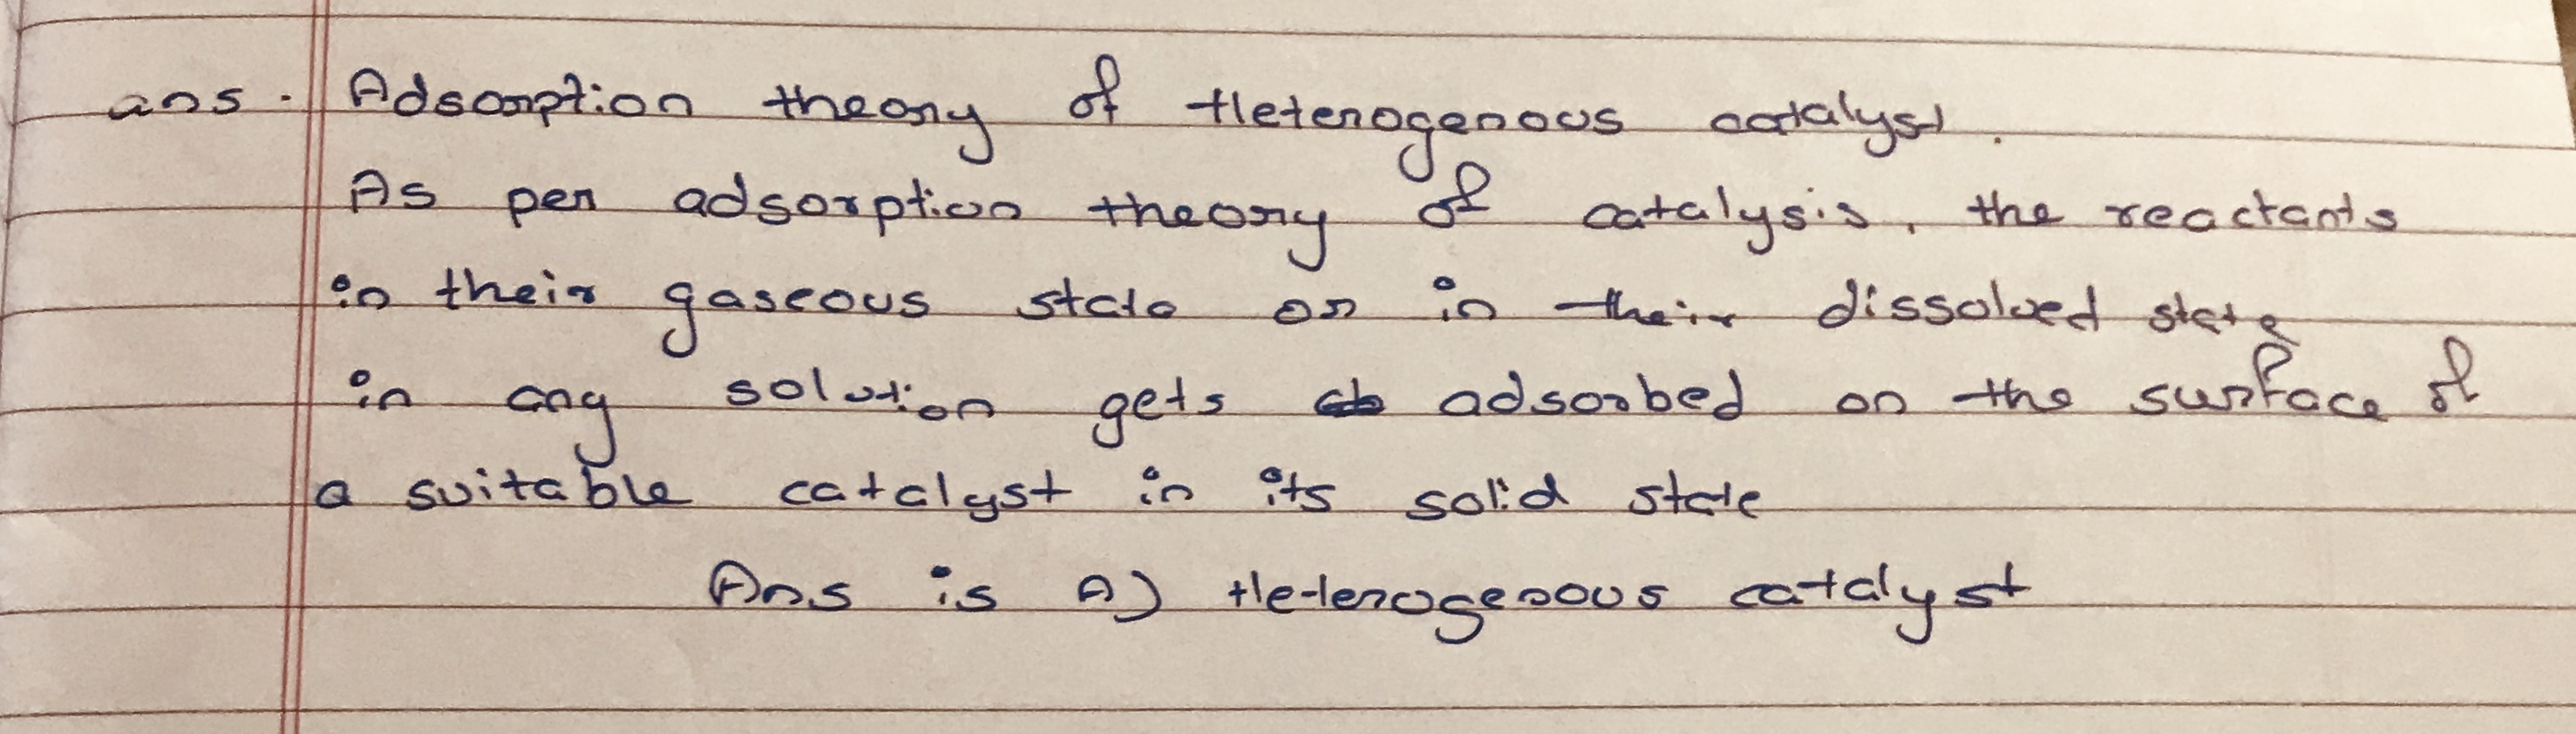 ans. Adsorption theory of Heterogenous catalyst.
As per adsorption theory of catalysis, the reactants
in their gaseous state or in their dissolved state
in any solution gets adsorbed on the surface of
a suitable catalyst in its solid state
Ans is A) Heterogenous catalyst